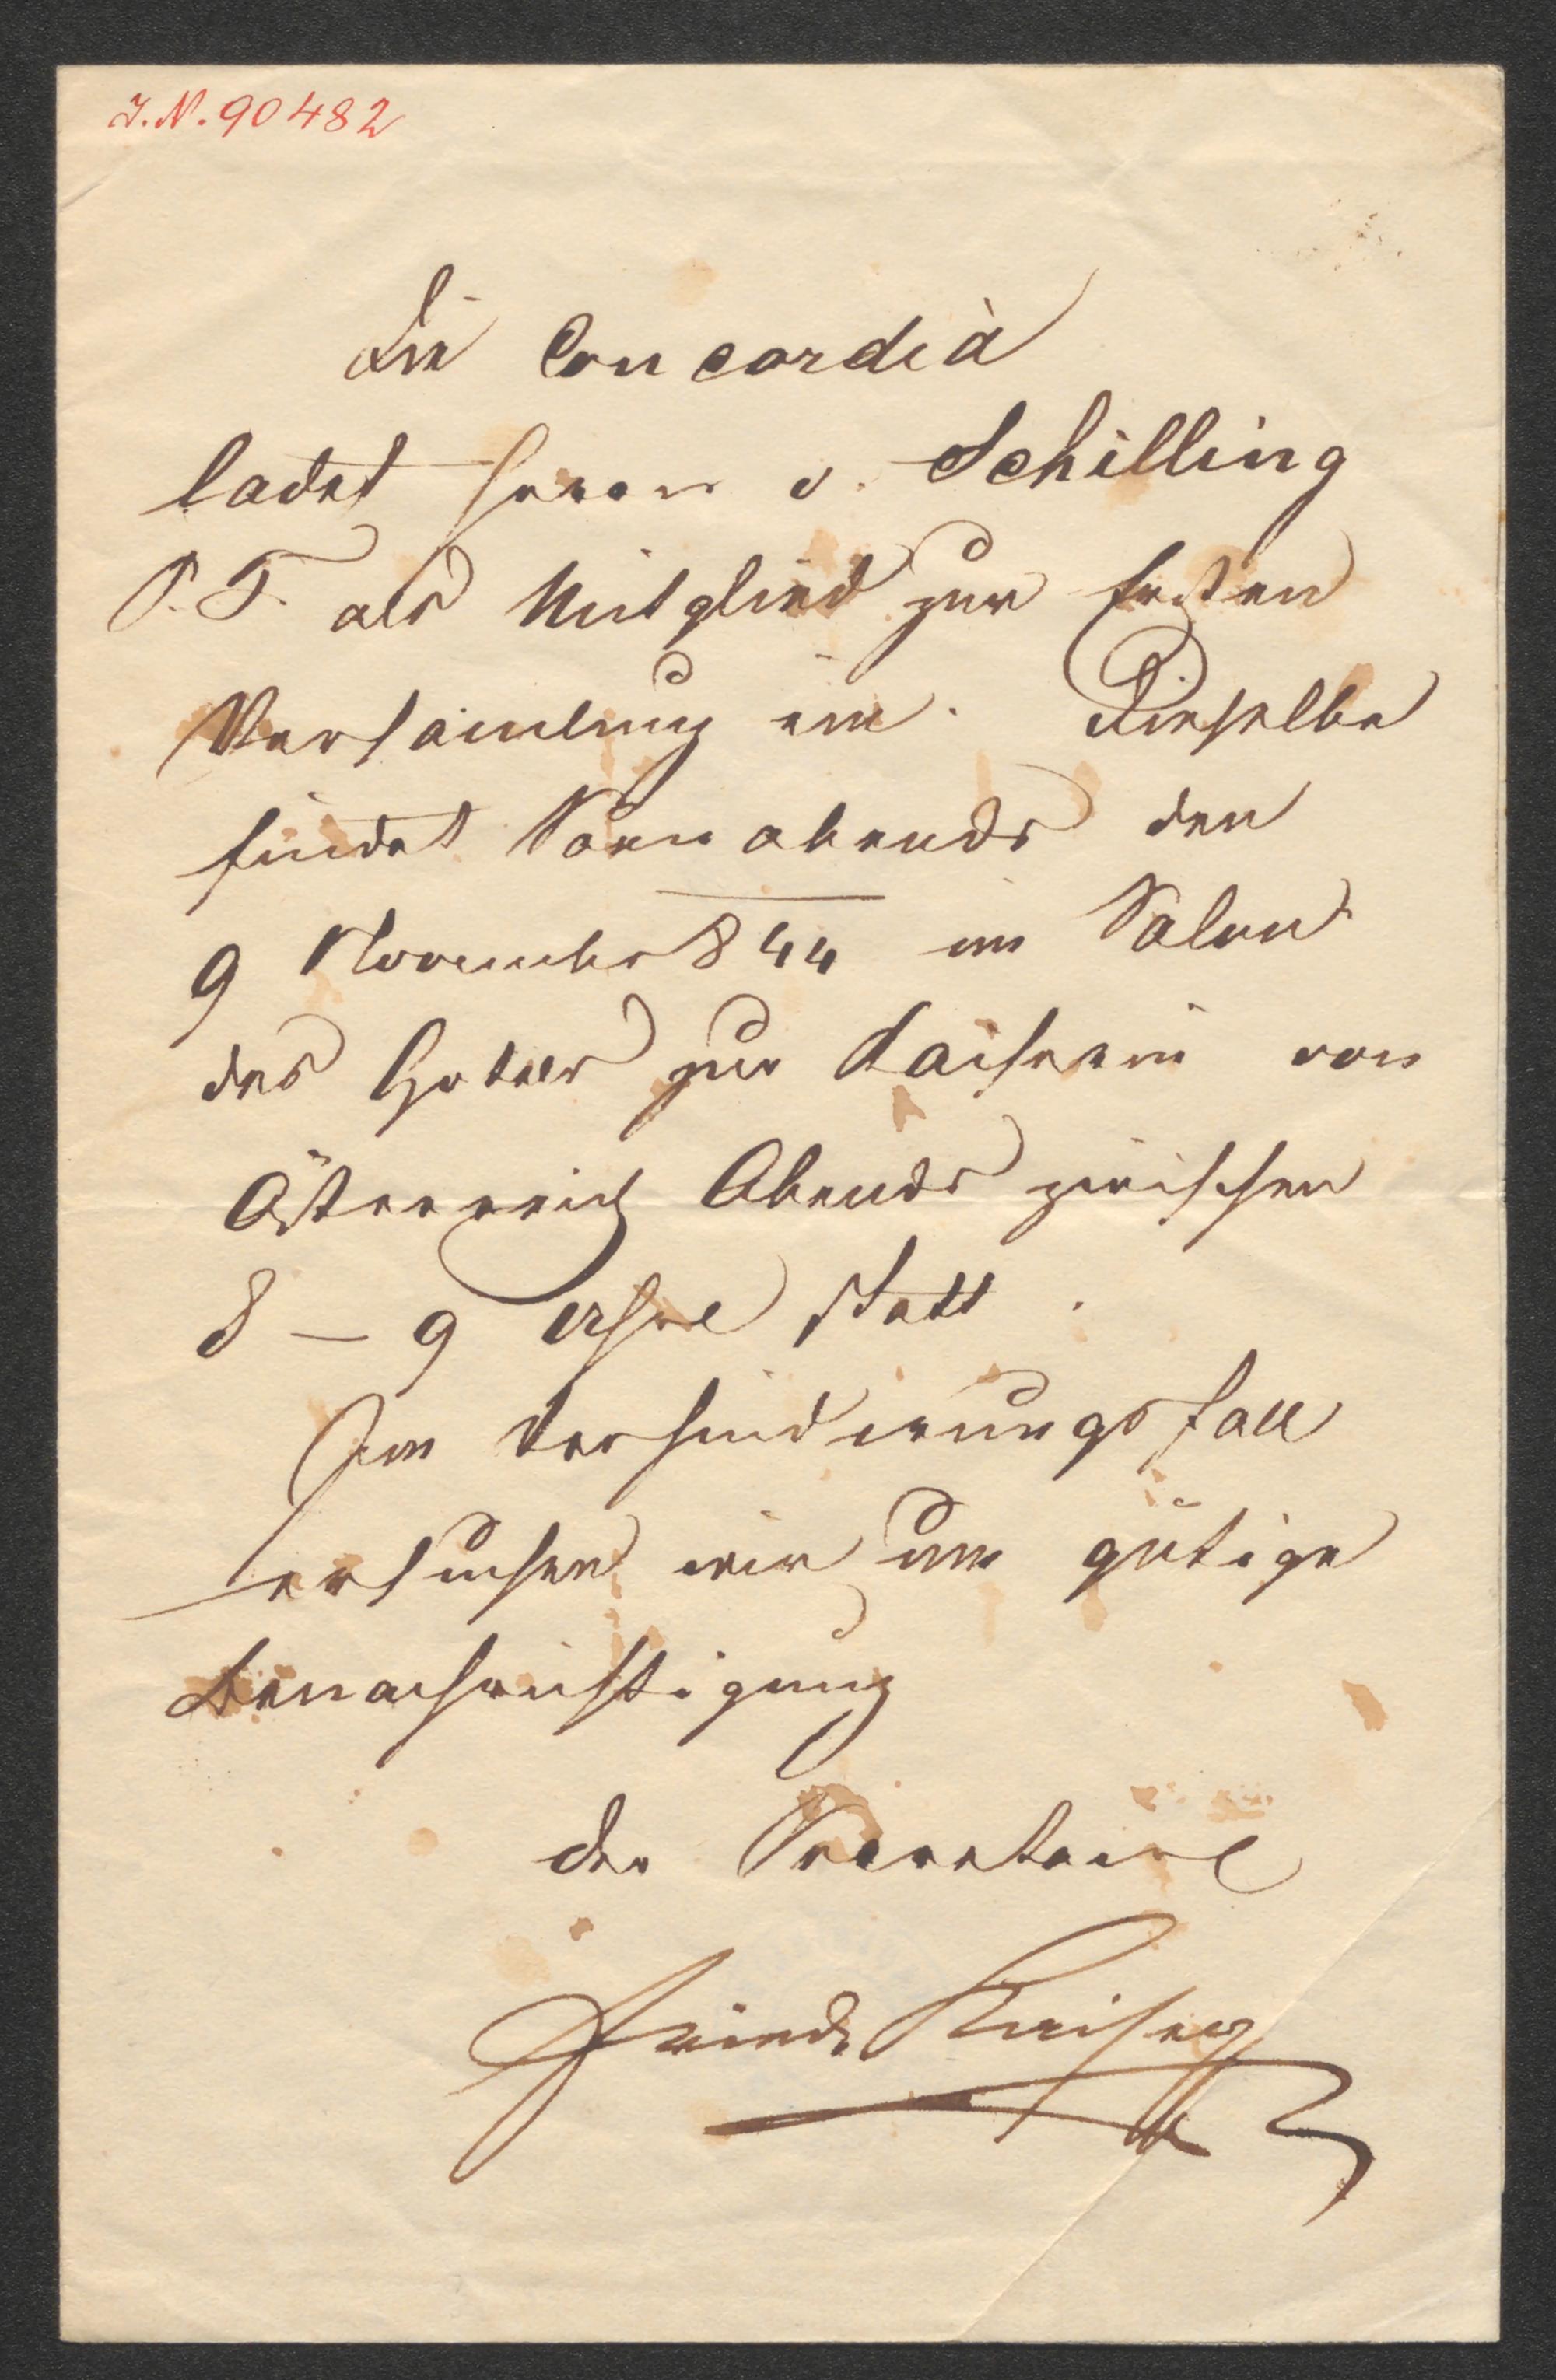 I.N. 90482
Die Concordia
ladet Herrn v. Schilling
P. T. als Mitglied zur Ersten
Versam̄lung ein. Dieselbe
findet Sonnabends den
9 November 844 im Salon
des Hotels zur Kaiserin von
Österreich Abends zwischen
8 – 9 Uhr statt.
Im Verhinderungsfall
ersuchen wir um gütige
Benachrichtigung
der Secretaire
Friedr Kaiser